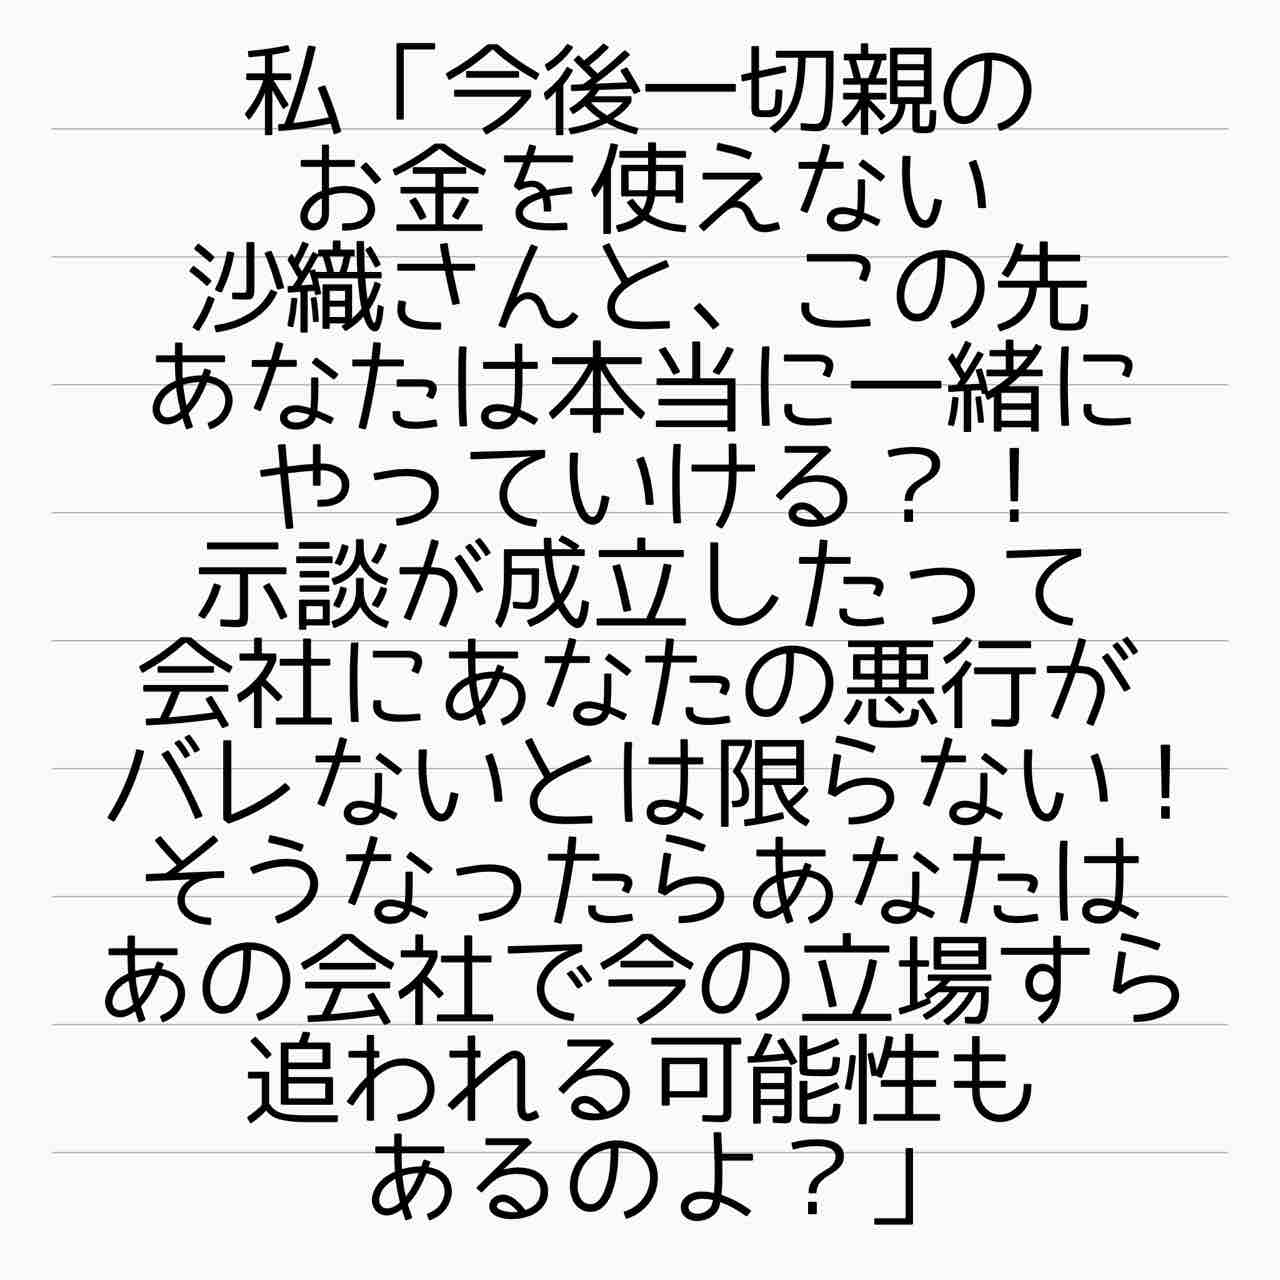 私「今後一切親の
お金を使えない
沙織さんと、この先
あなたは本当に一緒に
やっていける？！
示談が成立したって
会社にあなたの悪行が
バレないとは限らない！
そうなったらあなたは
あの会社で今の立場すら
追われる可能性も
あるのよ？」